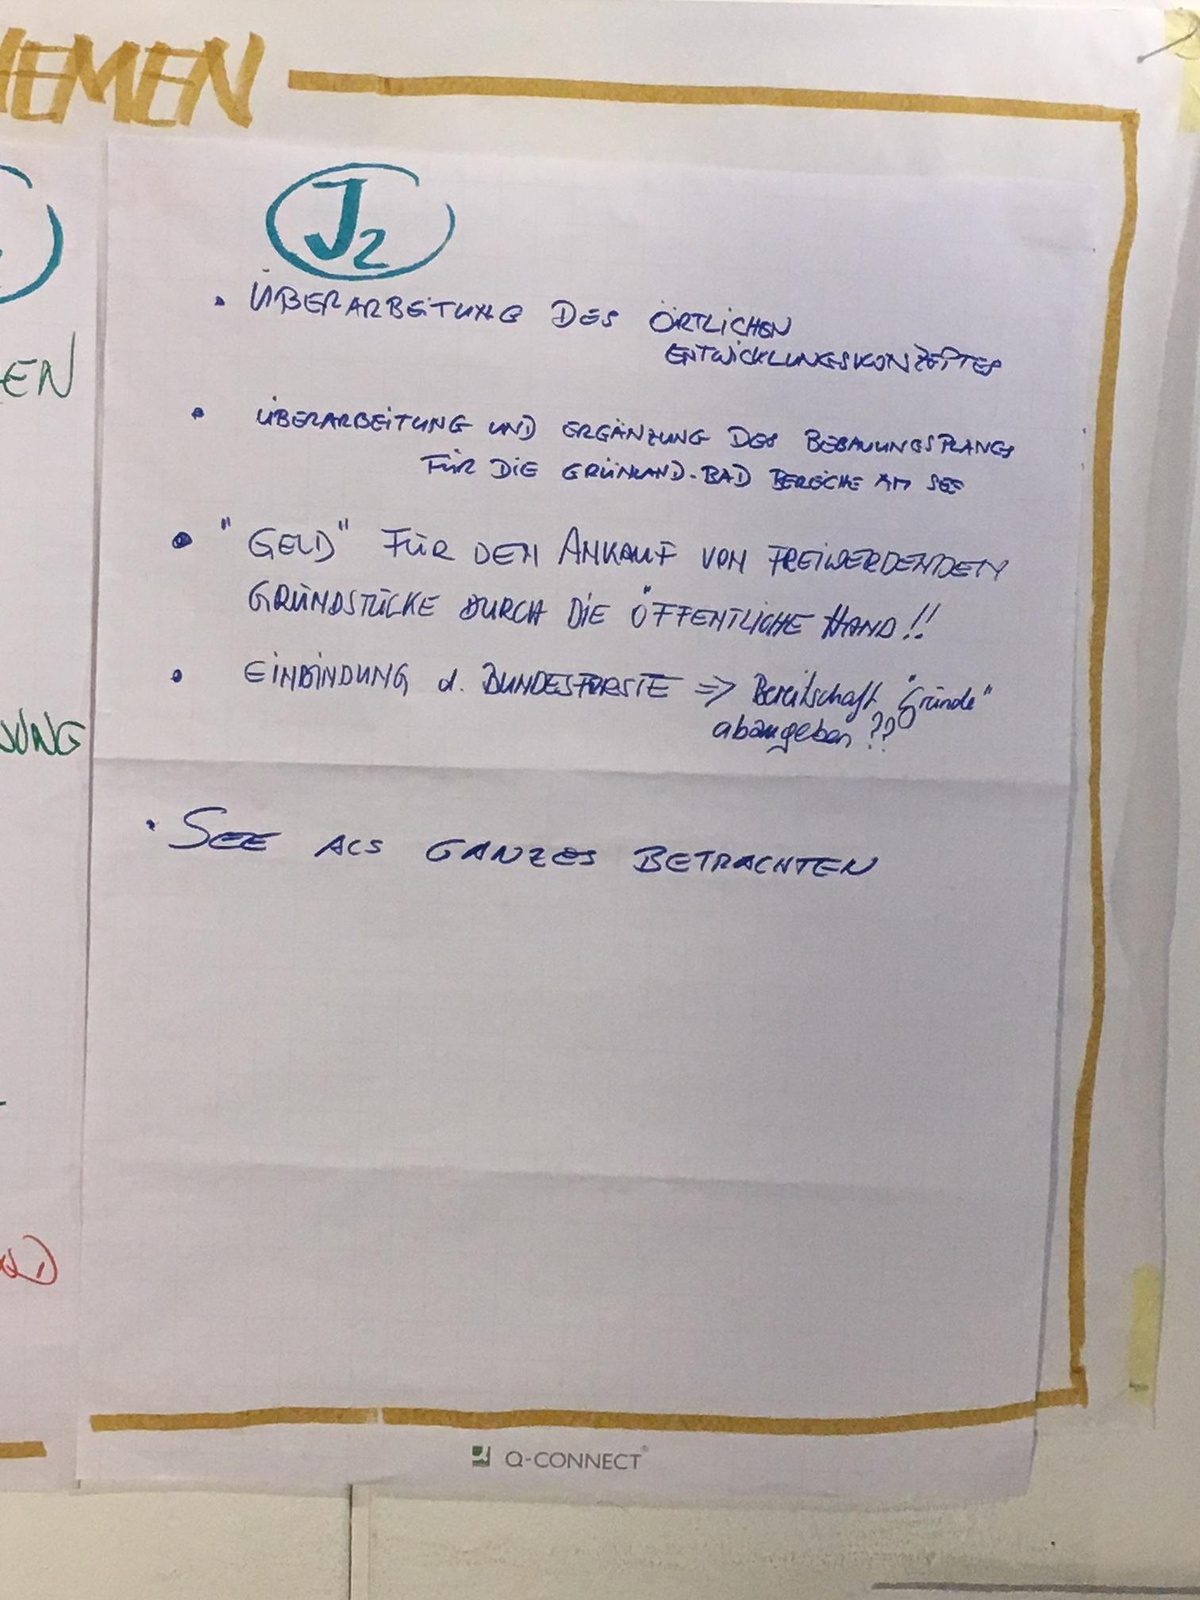 HEMEN
J2
• ÜBERARBEITUNG DES ÖRTLICHEN
ENTWICKLUNGSKONZEPTES
• ÜBERARBEITUNG UND ERGÄNZUNG DES BEBAUUNGSPLANES
FÜR DIE GRÜNLAND-BAD BEREICHE AM SEE
• "GELD" FÜR DEN ANKAUF VON FREIWERDENDEN
GRUNDSTÜCKE DURCH DIE ÖFFENTLICHE HAND!!
• EINBINDUNG d. BUNDESFORSTE => Bereitschaft "Gründe"
abzugeben ??
• SEE ALS GANZES BETRACHTEN
EN
SUNG
Q-CONNECT®